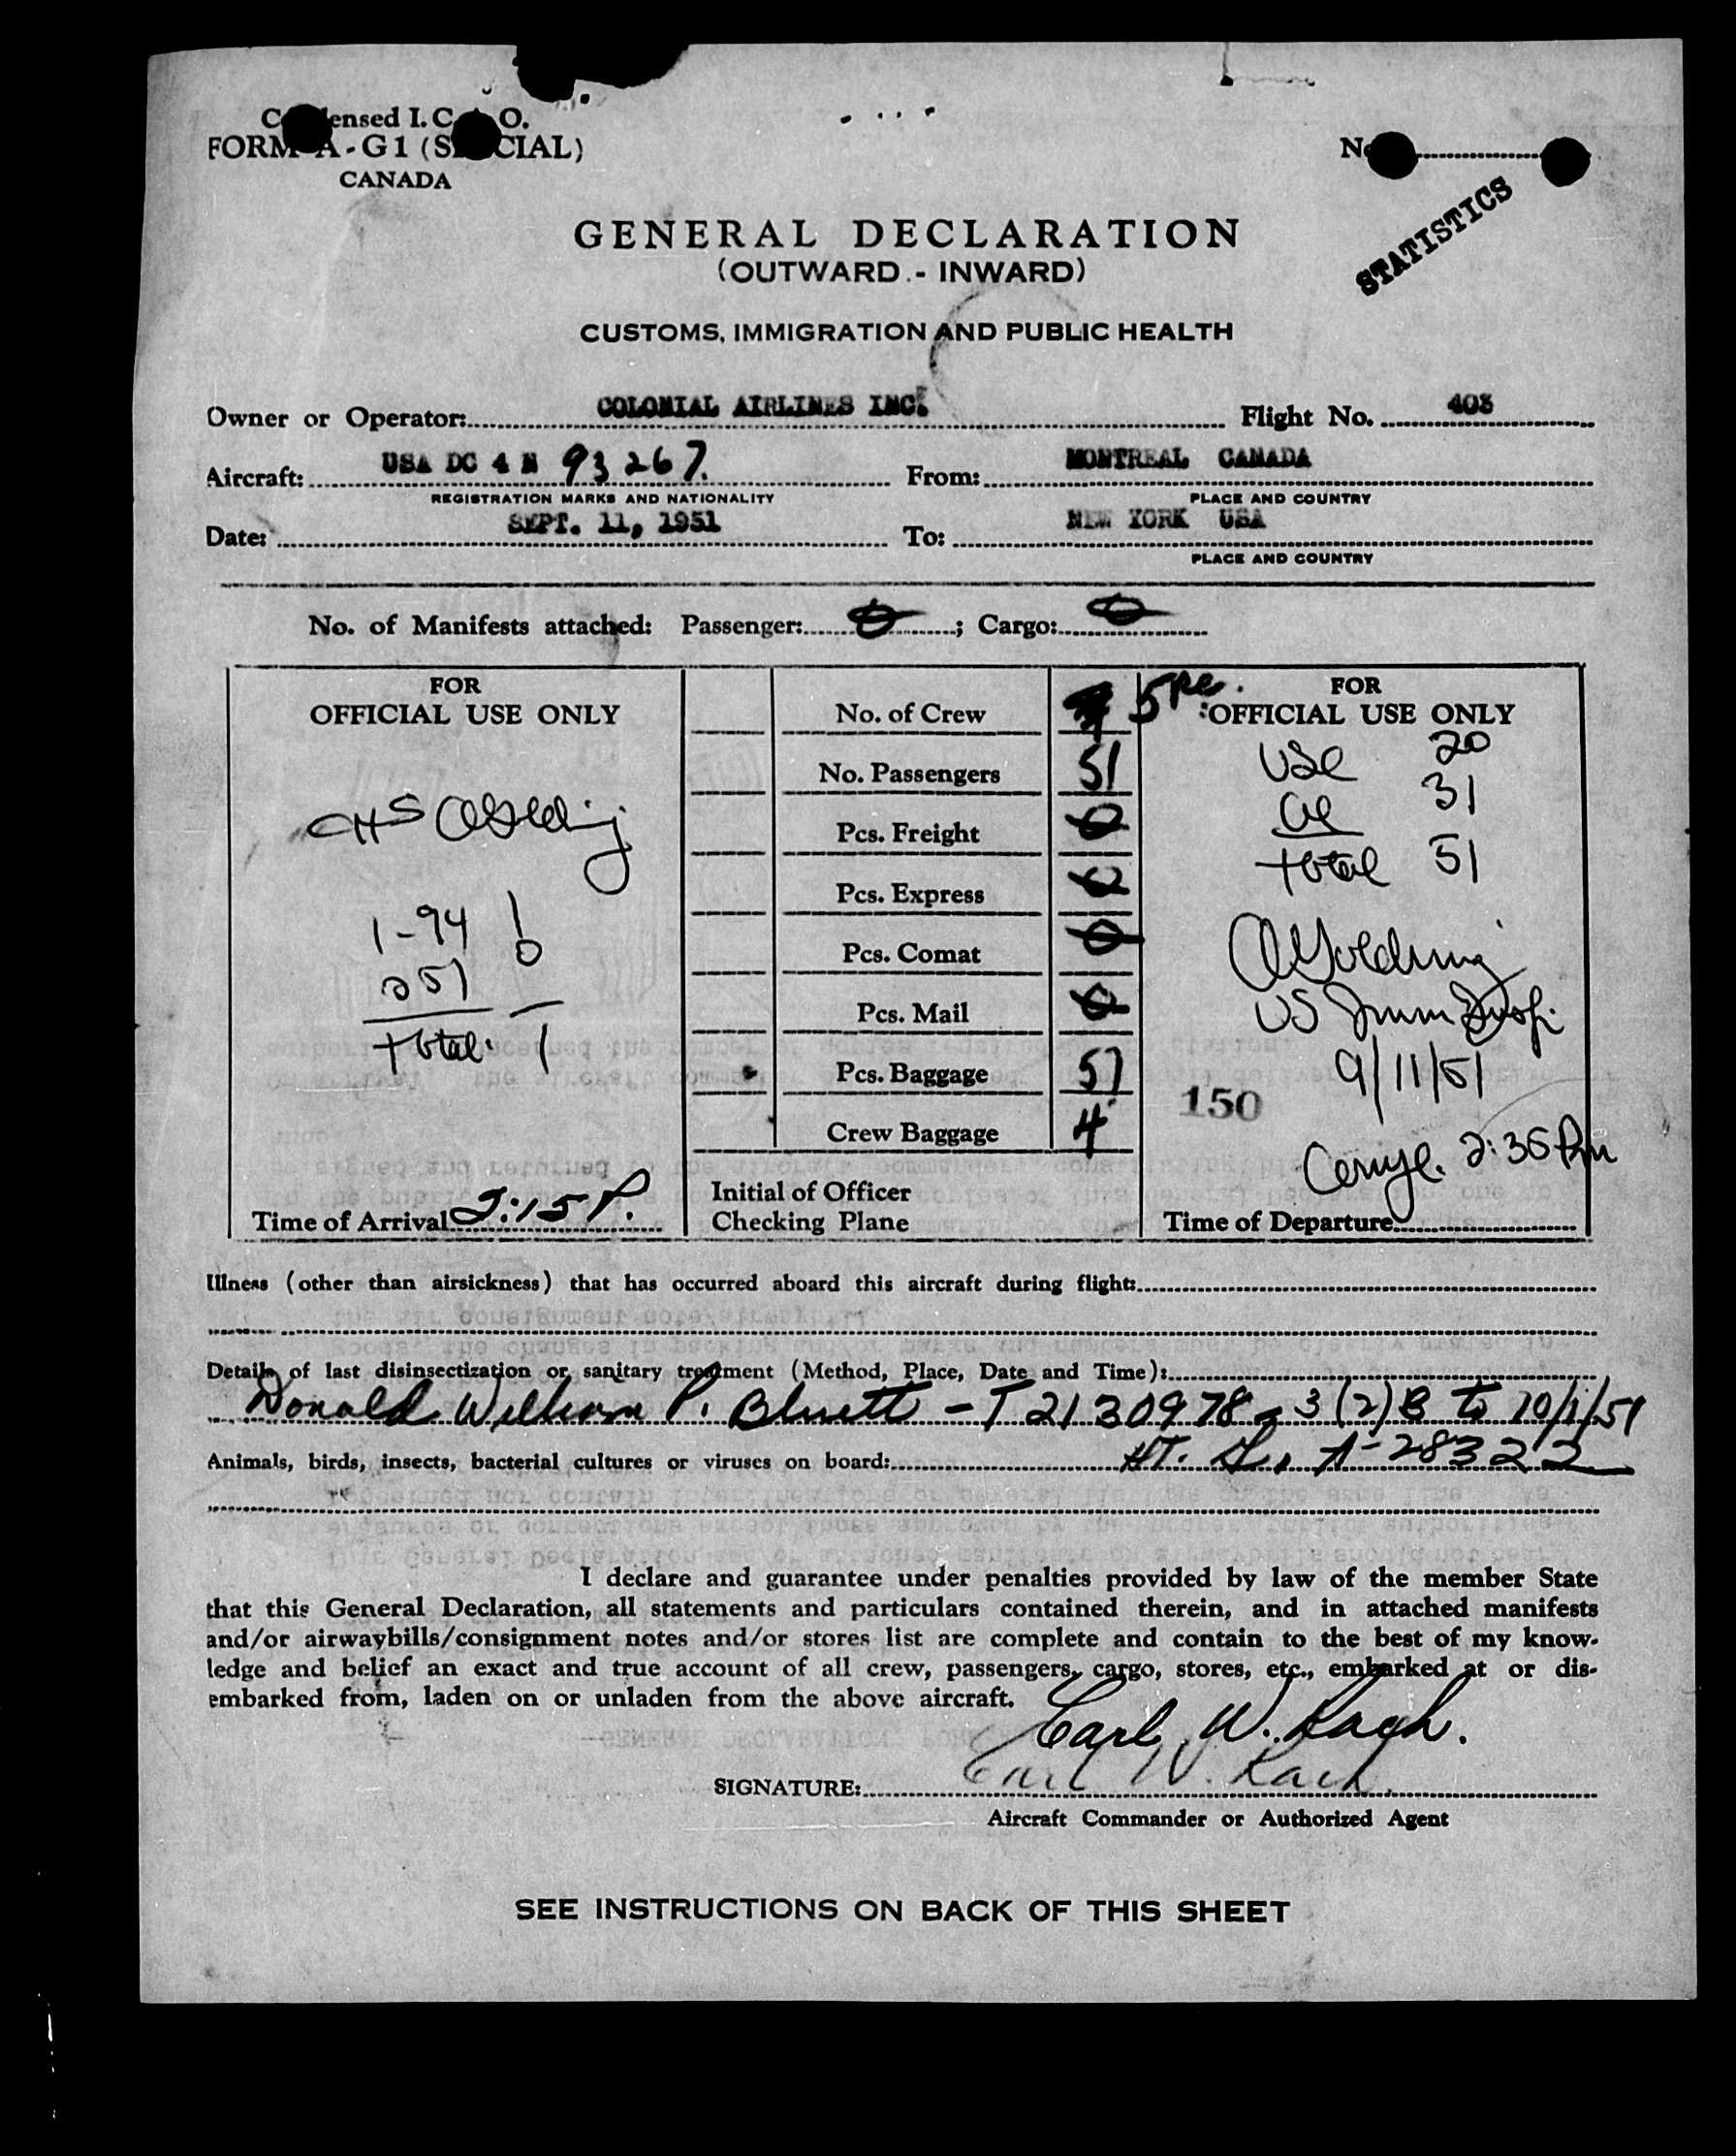 ensed I.C O.
FORM A-G1 (S CIAL)
CANADA
STATISTICS
GENERAL DECLARATION
(OUTWARD - INWARD)
CUSTOMS, IMMIGRATION AND PUBLIC HEALTH
Owner or Operator: COLONIAL AIRLINES INC. Flight No. 403
Aircraft: USA DC 4 N 93267. From: MONTREAL CANADA
REGISTRATION MARKS AND NATIONALITY PLACE AND COUNTRY
Date: SEPT. 11, 1951 To: NEW YORK USA
PLACE AND COUNTRY
No. of Manifests attached: Passenger: 0 ; Cargo: 0
FOR
OFFICIAL USE ONLY
1-94 1
257 0
total 1
Time of Arrival 2:15 P.
No. of Crew 5
No. Passengers 51
Pcs. Freight 0
Pcs. Express 0
Pcs. Comat 0
Pcs. Mail 0
Pcs. Baggage 57
Crew Baggage 4
Initial of Officer
Checking Plane
FOR
OFFICIAL USE ONLY
USC 20
al 31
total 51
A Golding
US Imm Insp.
9/11/51
150
2:35 Pm
Time of Departure
Illness (other than airsickness) that has occurred aboard this aircraft during flight:
Details of last disinsectization or sanitary treatment (Method, Place, Date and Time):
Donald William P. Bluett - T 2130978 - 3(2)B to 10/1/51
Animals, birds, insects, bacterial cultures or viruses on board: A-28322
I declare and guarantee under penalties provided by law of the member State
that this General Declaration, all statements and particulars contained therein, and in attached manifests
and/or airwaybills/consignment notes and/or stores list are complete and contain to the best of my know-
ledge and belief an exact and true account of all crew, passengers, cargo, stores, etc., embarked at or dis-
embarked from, laden on or unladen from the above aircraft.
Carl W. Kach.
SIGNATURE: Carl W. Kach.
Aircraft Commander or Authorized Agent
SEE INSTRUCTIONS ON BACK OF THIS SHEET